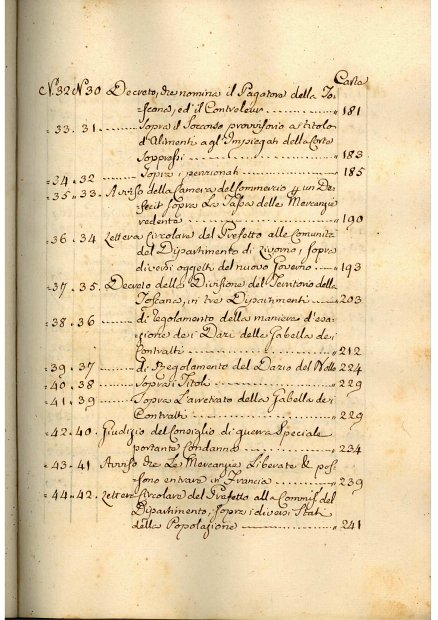 Carta
N.32 N.30 Decreto, che nomina il Pagatore della To-
scana, ed il Controleur " 181
" 33. 31 Sopra il Soccorso provvisorio a titolo
d'Alimenti agl'Impiegati della Corte
Soppressi " 183
" 34. 32 Sopra i pensionati 185
" 35. " 33. Avviso della Camera del Commercio p. un De-
ficit sopra La Tassa delle Mercanzie
vedente " 190
" 36. 34 Lettera Circolare del Prefetto alle Comunità
del Dipartimento di Livorno, sopra
diversi oggetti del nuovo Governo " 193
" 37. 35. Decreto della Divisione del Territorio della
Toscana, in tre Dipartimenti " 203
" 38. 36 di regolamento della maniera d'esa-
zione dei Dazi delle Gabella dei
Contratti " 212
" 39. 37 di Regolamento del Dazio del Bollo 224
" 40. 38 Sopra i Titoli " 229
" 41. 39 Sopra L'arretrato della Gabella dei
Contratti " 229
" 42. 40. Giudizio del Consiglio di guerra Speciale
portante Condanna " 234
" 43. 41 Avviso che Le Mercanzie Liberate & pos-
sono entrare in Francia " 239
" 44. " 42. Lettera Circolare del Prefetto alla Commiss. del
Dipartimento, sopra i diversi Stati
della Popolazione " 241